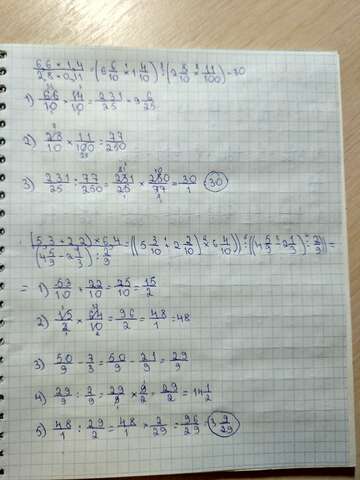 6,6 × 1,4 / 2,8 × 0,11 = (6 6/10 × 1 4/10) : (2 8/10 × 11/100) = 30
1) 66/10 × 14/10 = 231/25 = 9 6/25
2) 28/10 × 11/100 = 77/250
3) 231/25 : 77/250 = 231/25 × 250/77 = 30/1 = 30
(5,3 + 2,2) × 6,4 / (4 5/9 - 2 1/3) : 2/9 = ((5 3/10 + 2 2/10) × 6 4/10) : ((4 5/9 - 2 1/3) : 2/9) =
= 1) 53/10 + 22/10 = 25/10 = 15/2
2) 15/2 × 64/10 = 96/2 = 48/1 = 48
3) 50/9 - 7/3 = 50/9 - 21/9 = 29/9
4) 29/9 : 2/9 = 29/9 × 9/2 = 29/2 = 14 1/2
5) 48/1 : 29/2 = 48/1 × 2/29 = 96/29 = 3 9/29